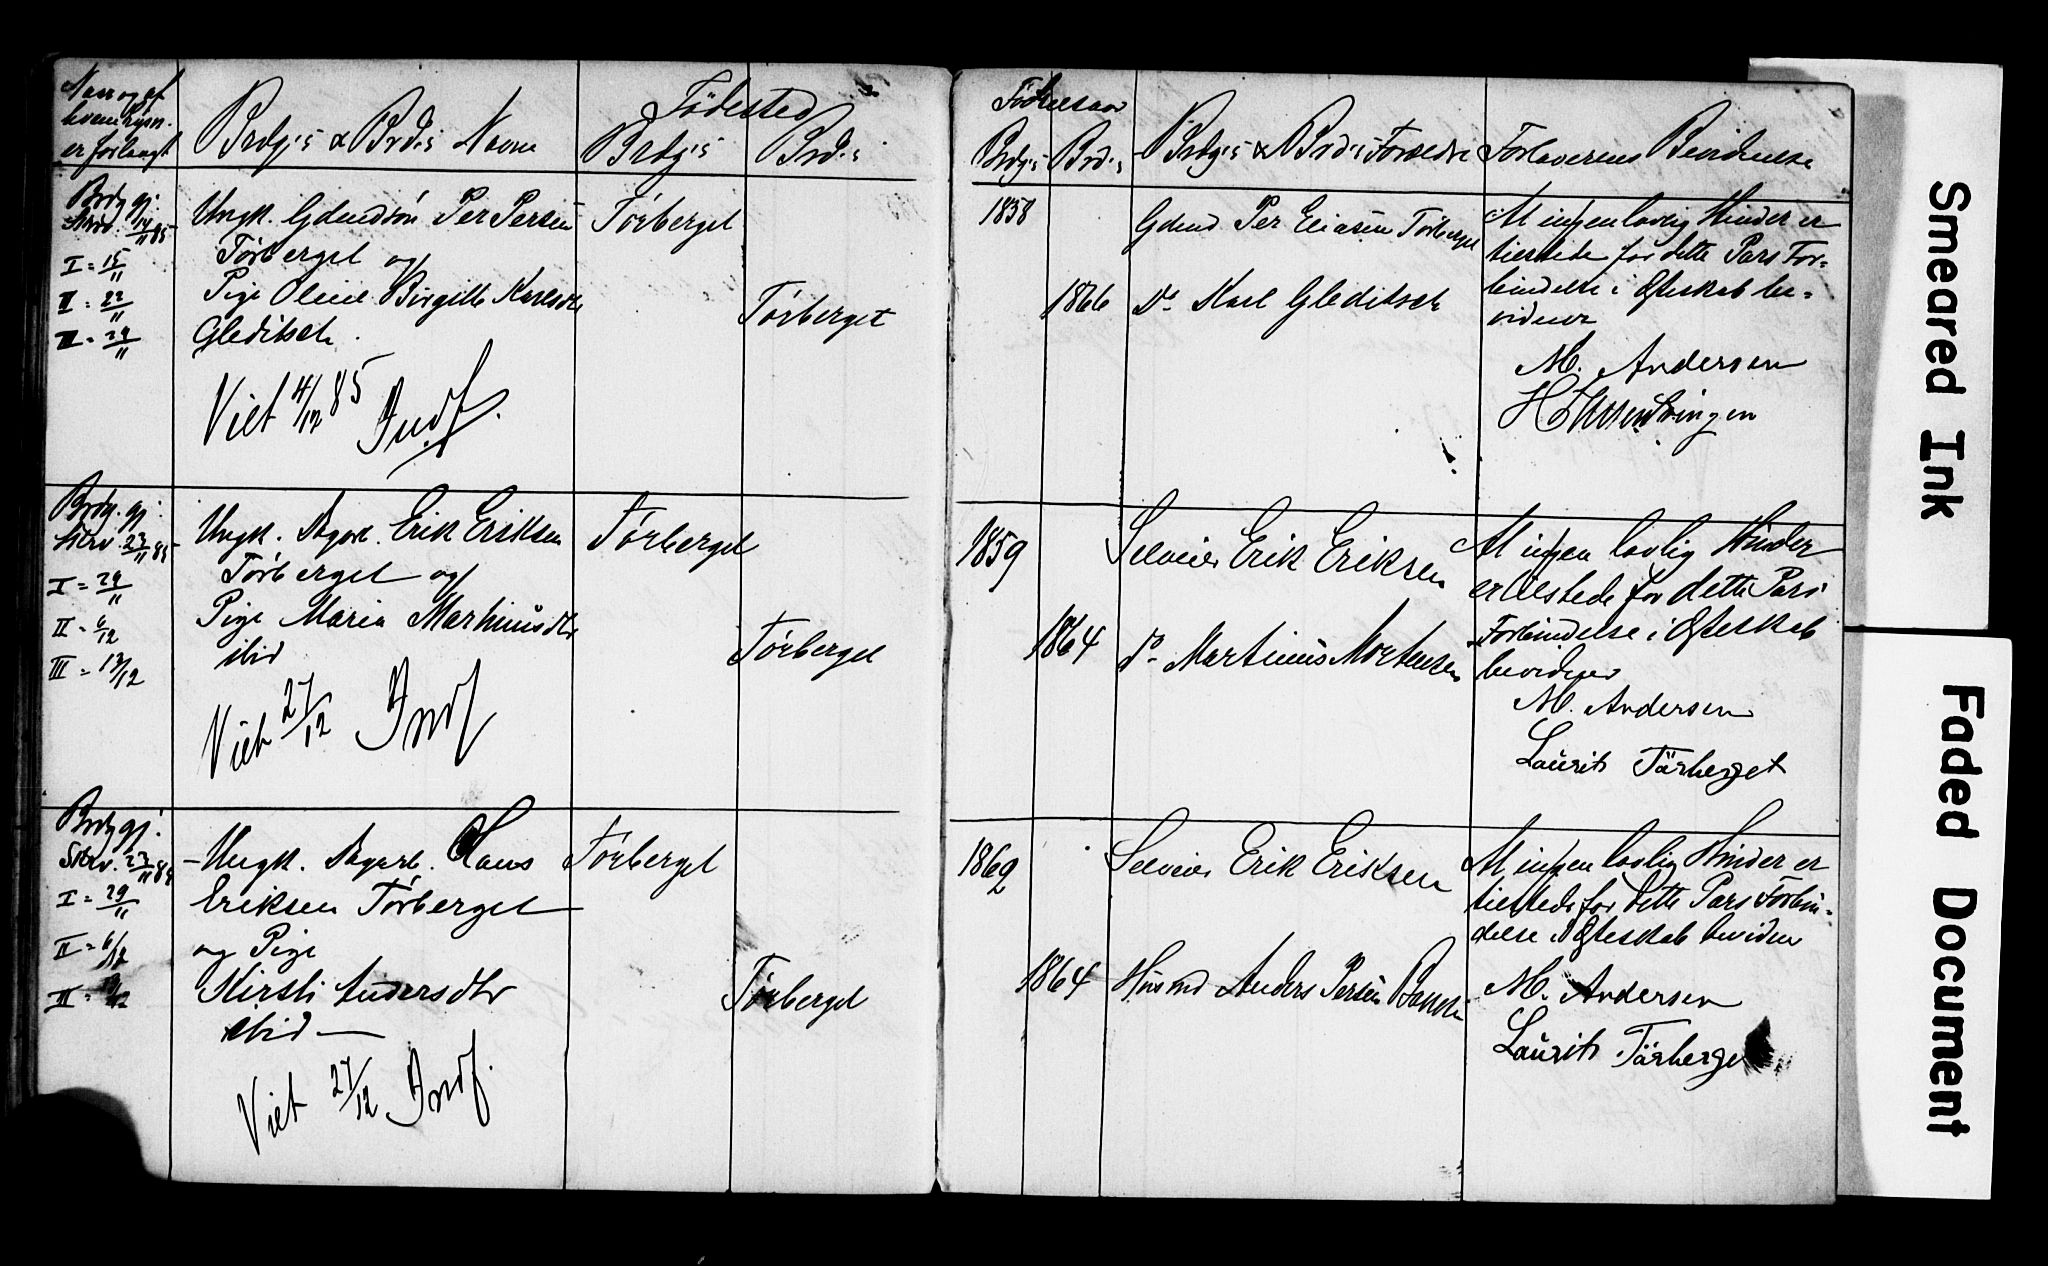 Naar og af
hvem Lysn.
er forlangt
Brdg.s & Brd.s Navne
Fødested
Brdg.s
Brd.s
Fødselsaar
Brdg.s Brd.s
Brdg.s & Brd.s Forældre
Forloverens Bevidnelse
Brdg. gj.
Skrv. 14/11 85
I = 15/11
II = 22/11
III = 29/11
Ungk. Gdmdsøn Per Persen
Tørberget og
Pige Oline Birgitte Karlsdtr
Gleditsch.
Viet 4/12 85 Indf.
Tørberget
Tørberget
1858
1866
Gdmd Per Eliasen Tørberget
Do Karl Gleditsch
At ingen lovlig Hinder er
tilstede for dette Pars For=
bindelse i Ægteskab be=
vidner
M. Andersen
Brdg. gj.
Skrv. 23/11 85
I = 29/11
II = 6/12
III = 13/12
Ungk. Agarb. Erik Eriksen
Tørberget og
Pige Maria Martinusdtr
ibid
Viet 27/12 Indf
Tørberget
Tørberget
1859
1864
Selveier Erik Eriksen
Do Martinus Mortensen
At ingen lovlig Hinder
er tilstede for dette Pars
Forbindelse i Ægteskab
bevidner
M. Andersen
Laurits Tärberget
Brdg gj.
Skrv. 23/11
I = 29/11
II = 6/12
III =
Ungk. Agarb. Hans
Eriksen Tørberget
og Pige
Kirsti Andersdtr
ibid
Viet 27/12 Indf.
Tørberget
Tørberget
1862
1864
Selveier Erik Eriksen
Husmd Anders Persen
At ingen lovlig Hinder er
tilstede for dette Pars Forbin=
delse i Ægteskab bevidner
M. Andersen
Laurits Tärberget
Smeared Ink
Faded Document